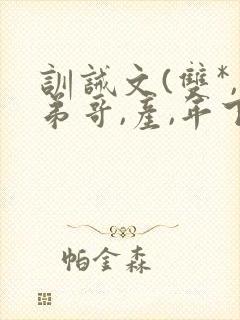 訓誡文(雙*,
弟哥,產,年下
帕金森